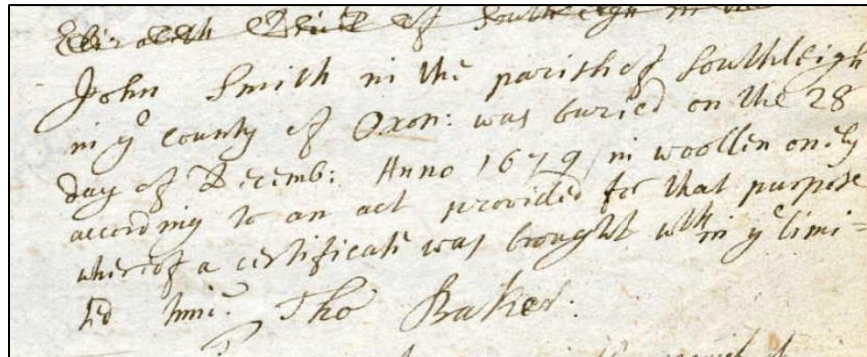 Elizabeth of Southleigh in the
John Smith in the parish of Southleigh
in ye county of Oxon: was buried on the 28
day of Decemb: Anno 1679 in woollen onely
according to an act provided for that purpose
whereof a certificate was brought wthin ye limi=
ted time. Tho Baker.